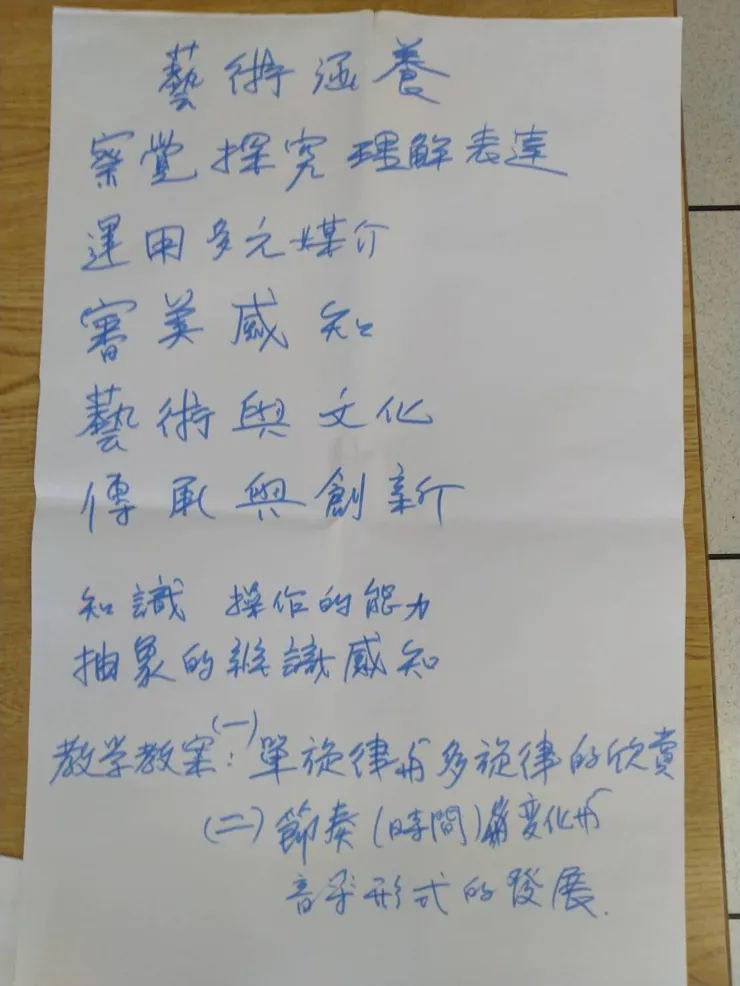 藝術涵養
察覺 探究 理解 表達
運用多元媒介
審美感知
藝術與文化
傳承與創新
知識 操作的能力
抽象的辨識感知
教学教案：(一) 單旋律與多旋律的欣賞
(二) 節奏(時間)變化与
音形式的發展.